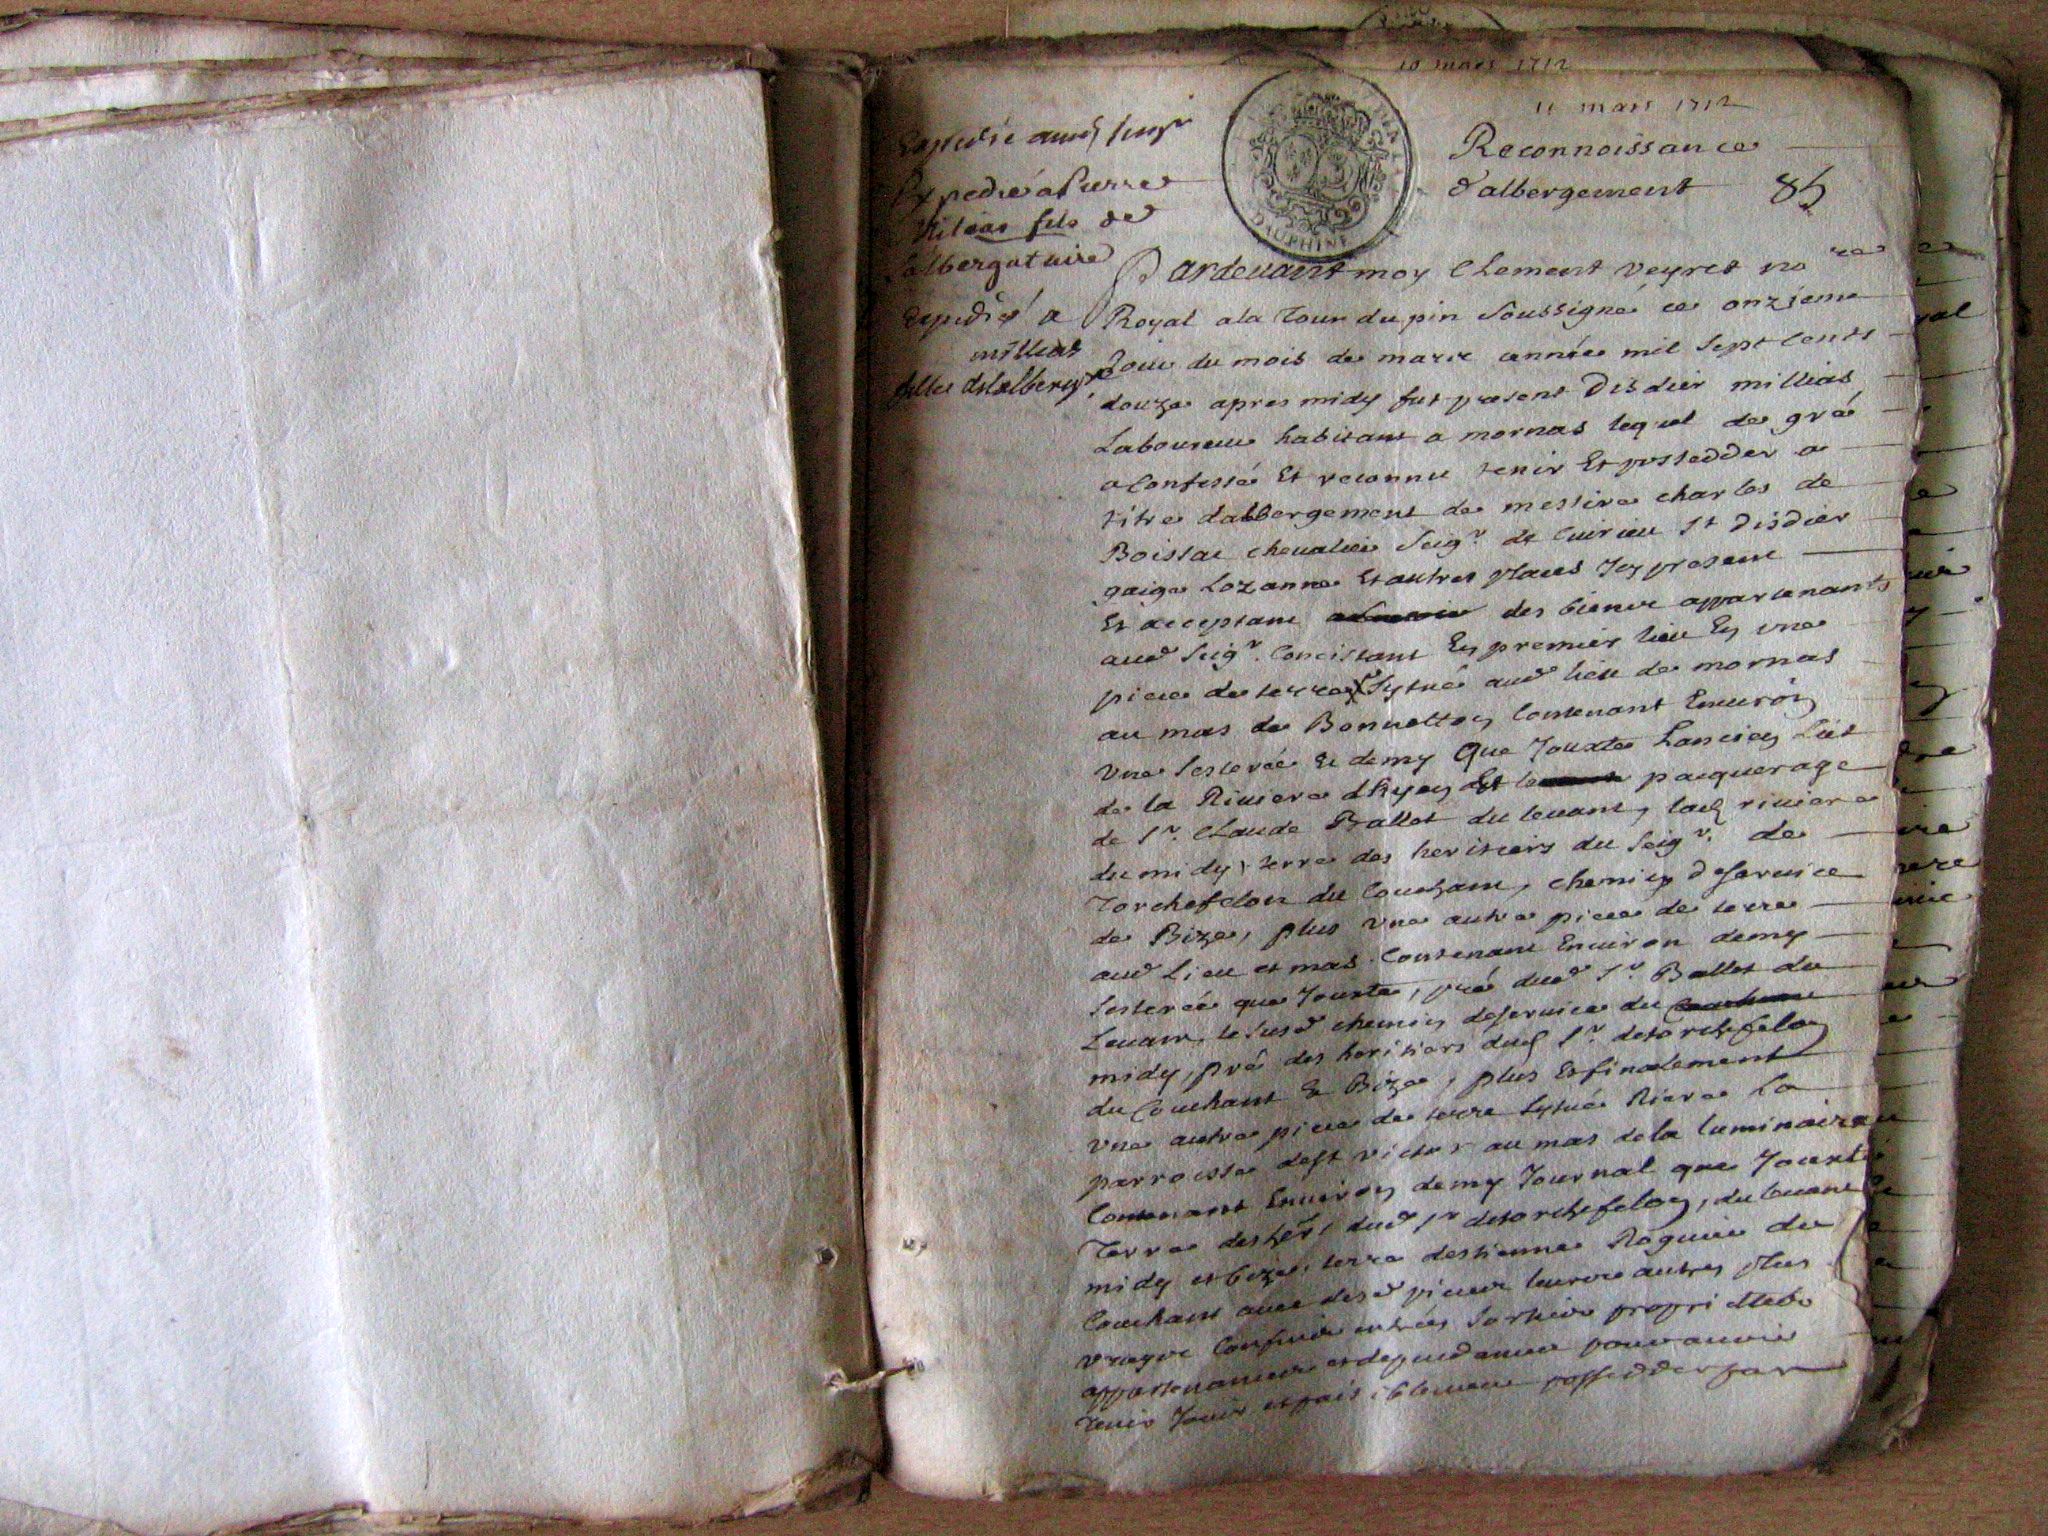 10 mars 1712
11 mars 1712
Reconnoissance
d'albergement 85
DAUPHINE
Expedié aud Seigr
Expedié a Pierre
Milias fils de
l'albergataire
Expedié a
millias
fille de l'alberg.re
Pardeuant moy Clement Veyret no re
Royal a la Tour du pin Soussigné ce onzieme
Jour du mois de mars année mil Sept Cents
douze apres midy fut present Disdier millias
Laboureur habitant a mornas lequel de gré
a Confessé Et reconnu tenir Et posseder a
titre dalbergement de messire charles de
Boissac cheualier Seigr de Cuirieu St Disdier
gaige Lozanne Et autres places Icy present
Et acceptant des biens appartenants
aud Seigr. Concistant En premier lieu En une
piece de terre Sytuée aud lieu de mornas
au mas de Bonnetton Contenant Enuiron
Vne Sesterée Et demy Que Jouxte Lancien Lict
de la Riuiere dhyen Et le pacquerage
de Sr. Claude Ballet du leuant, lad riuiere
du midy, terre des heritiers du Seigr. de
Torchefelon du Couchant, chemin deseruice
de Bize, plus vne autre piece de terre
aud Lieu et mas Contenant Enuiron demy
Sesterée que Jouxte, pré dud Sr. Ballet du
Leuant, le susd chemin deseruice du
midy, pré des heritiers dud Sr. detorchefelon
du Couchant & Bize, plus Et finalement
vne autre piece de terre Sytuée Riere La
parroisse de St victor au mas de la luminaire
Contenant Enuiron demy Journal que Jouxte
Terre des her. dud Sr detorchefelon, du leuant
midy et bize, terre destienne Roguier du
Couchant auec desd pieces leurs autres plus
vrays Confins entrées Sorties proprietés
appartenances et dependances pour auoir
tenir Jouir et paisiblement posseder par